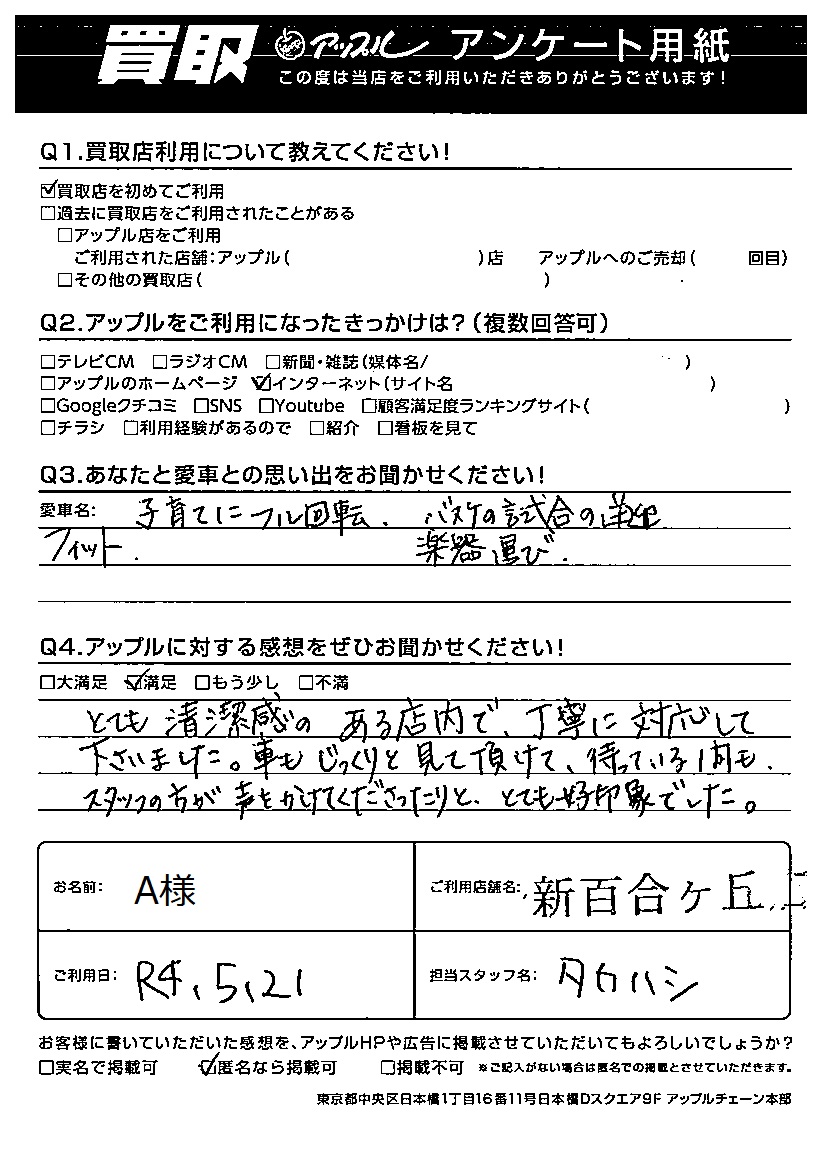 買取 アップル アンケート用紙
この度は当店をご利用いただきありがとうございます!
Q1.買取店利用について教えてください!
☑買取店を初めてご利用
□過去に買取店をご利用されたことがある
□アップル店をご利用
ご利用された店舗:アップル( )店 アップルへのご売却( 回目)
□その他の買取店( )
Q2.アップルをご利用になったきっかけは?(複数回答可)
□テレビCM □ラジオCM □新聞・雑誌(媒体名/ )
□アップルのホームページ ☑インターネット(サイト名 )
□Googleクチコミ □SNS □Youtube □顧客満足度ランキングサイト( )
□チラシ □利用経験があるので □紹介 □看板を見て
Q3.あなたと愛車との思い出をお聞かせください!
愛車名: 子育てにフル回転. バスケの試合の送迎
フィット. 楽器運び.
Q4.アップルに対する感想をぜひお聞かせください!
□大満足 ☑満足 □もう少し □不満
とても清潔感のある店内で、丁寧に対応して
下さいました。車もじっくりと見て頂けて、待っている間も.
スタッフの方が声をかけてくださったりと、とても好印象でした。
お名前: A様 ご利用店舗名: 新百合ヶ丘
ご利用日: R4.5.21 担当スタッフ名: タカハシ
お客様に書いていただいた感想を、アップルHPや広告に掲載させていただいてもよろしいでしょうか?
□実名で掲載可 ☑匿名なら掲載可 □掲載不可 ※ご記入がない場合は匿名での掲載とさせていただきます。
東京都中央区日本橋1丁目16番11号日本橋Dスクエア9F アップルチェーン本部